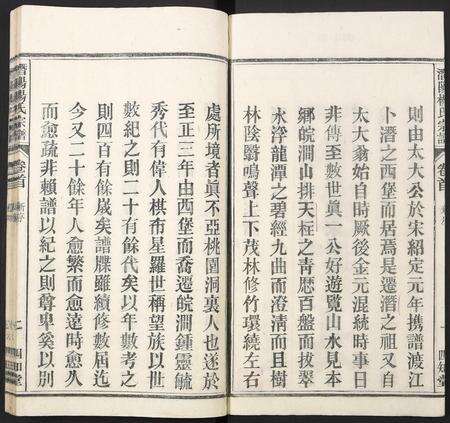 則由太大公於宋紹定元年攜譜渡江
卜潛之西堡而居焉是遷潛之祖又自
太大翁始自時厥後金元混統時事日
非傳至數世眞一公好遊覽山水見本
鄉皖澗山排天柱之靑歷百盤而拔翠
永淳龍潭之碧經九曲而澄淸而且樹
林陰翳鳴聲上下茂林修竹環繞左右
處所境者眞不亞桃園洞裏人也遂於
至正三年由西堡而喬遷皖澗鍾靈毓
秀代有偉人棋布星羅世稱望族以世
數紀之則二十有餘代矣以年數考之
則四百有餘歲矣譜牒雖續修數屆迄
今又二十餘年人愈繁而愈遠時愈久
而愈疏非賴譜以紀之則尊卑奚以別
潛陽楊氏宗譜
卷首
四知堂